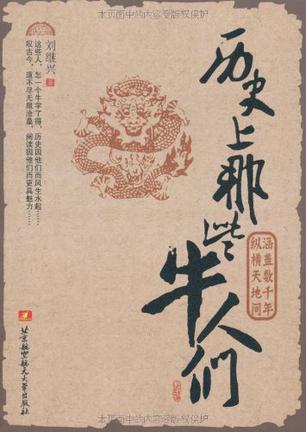 本页面中的内容受版权保护
历史上那些牛人们
涵盖数千年
纵横天地间
刘继兴 著
这些人，怎一个牛字了得，历史因他们而风生水起……
叹古今，道不尽无限沧桑，阅读因他们而更具魅力……
北京航空航天大学出版社
本页面中的内容受版权保护